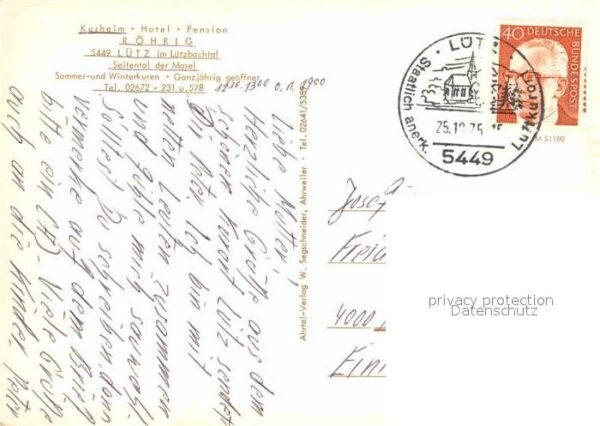 Kurheim · Hotel · Pension
RÖHRIG
5449 LÜTZ im Lützbachtal
Seitental der Mosel
Sommer- und Winterkuren · Ganzjährig geöffnet
Tel. 02672 - 231 u. 578
1300 o. n. 1900
Liebe Mutter!
herzliche Grüße aus dem
Kurort Lütz sendet
Dir Peter. Ich bin mit
netten Leuten zusammen
und fühle mich sauwohl.
Solltest Du schreiben, dann
vermerke auf dem Brief
bitte ein (P). Viele Grüße
auch an die Kinder. Peter
Ahrtal-Verlag W. Segschneider, Ahrweiler · Tel. 02641/5389
LÜTZ
Staatlich anerk. Luftkurort
25.10.75
5449
40
DEUTSCHE BUNDESPOST
M 51100
Josef
4000
privacy protection
Datenschutz